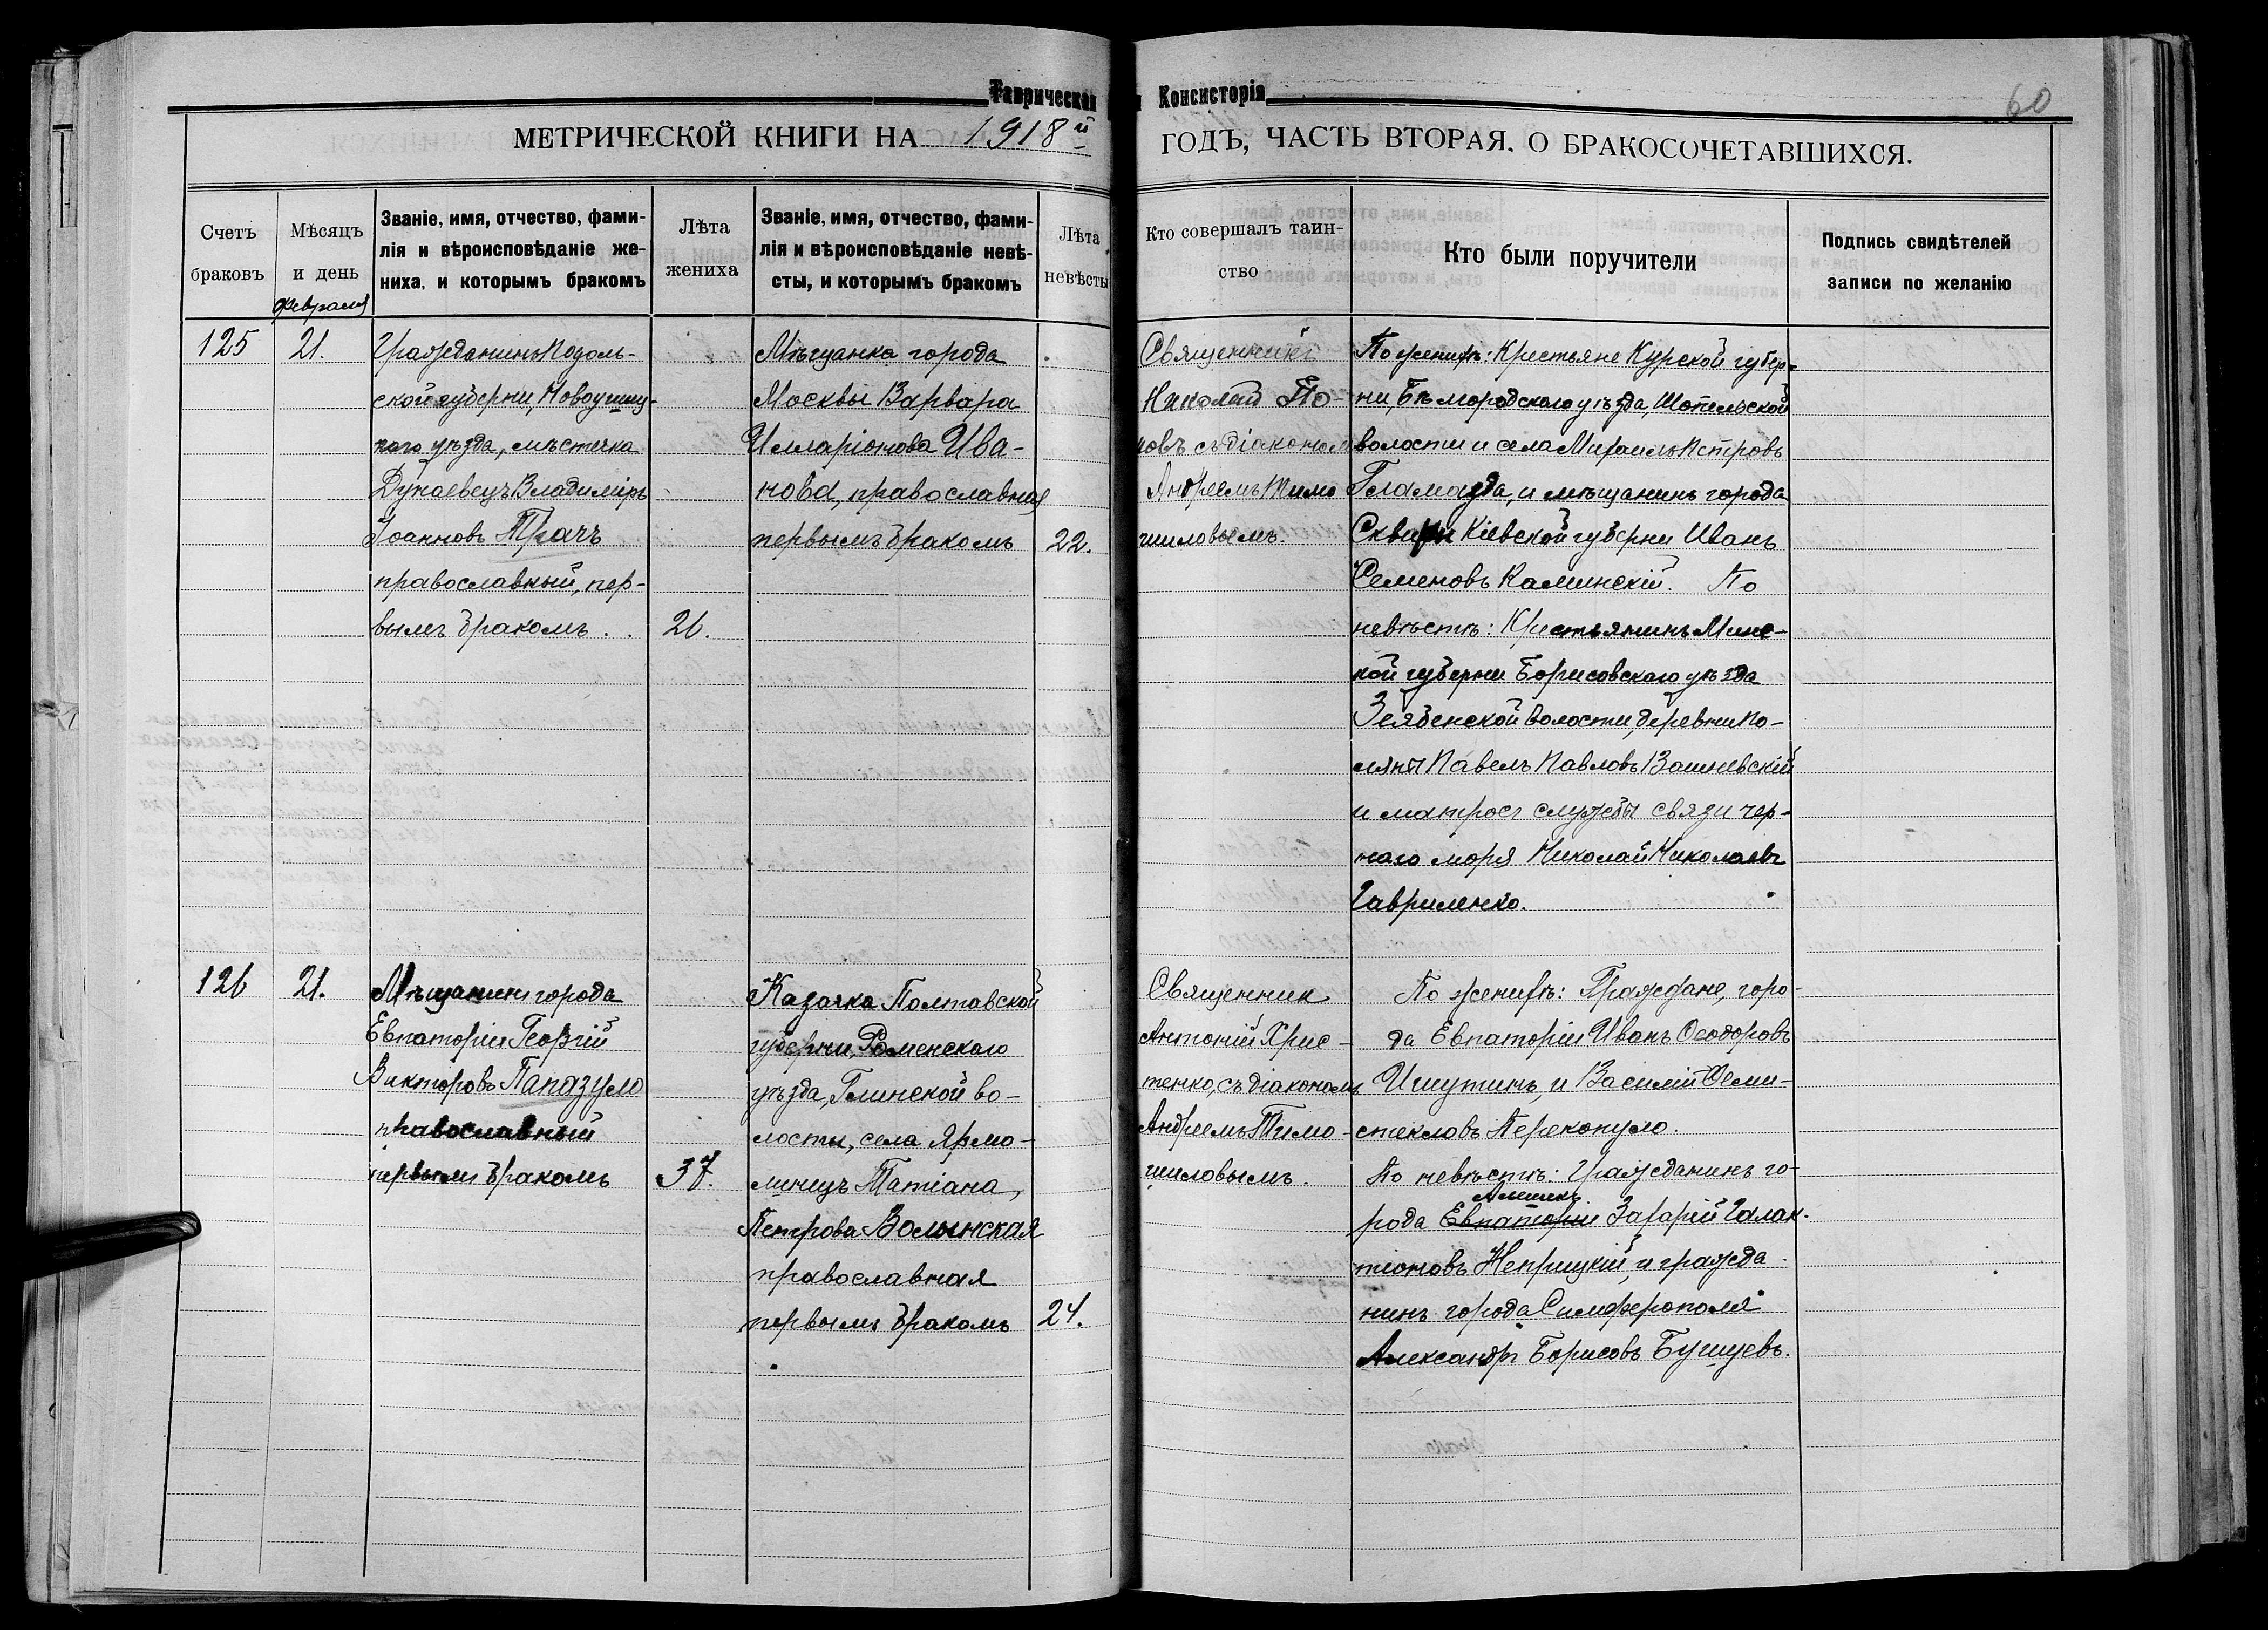 Таврическая Консисторія
60
МЕТРИЧЕСКОЙ КНИГИ НА 1918й ГОДЪ, ЧАСТЬ ВТОРАЯ, О БРАКОСОЧЕТАВШИХСЯ.
Счетъ
браковъ
Мѣсяцъ
и день
февраля
Званіе, имя, отчество, фами-
лія и вѣроисповѣданіе же-
ниха, и которымъ бракомъ
Лѣта
жениха
Званіе, имя, отчество, фами-
лія и вѣроисповѣданіе невѣ-
сты, и которымъ бракомъ
Лѣта
невѣсты
Кто совершалъ таин-
ство
Кто были поручители
Подпись свидѣтелей
записи по желанію
125
21.
Гражданинъ Подоль-
ской губерни, Новоушиц-
каго уѣзда, мѣстечка
Дунаевецъ Владиміръ
Іоанновъ Ткачъ
православный, пер-
вымъ бракомъ . .
26.
Мѣщанка города
Москвы Варвара
Илларіонова Ива-
нова, православная
первымъ бракомъ
22.
Священникъ
Николай По-
повъ съ діакономъ
Андреемъ Тимо
шиловымъ.
По женихѣ: Крестьяне Курской губер-
ни, Бѣлгородскаго уѣзда, Шопельской
волости и села Михаилъ Петровъ
Гламазда, и мѣщанинъ города
Сквиры Кіевской губерни Иванъ
Семеновъ Калинскій. По
невѣстѣ: Крестьянинъ Минс-
кой губерни Борисовскаго уѣзда
Зембенской волости, деревни По-
ляны Павелъ Павловъ Вашневскій
и матросъ службы связи чер-
наго моря Николай Николаевъ
Гавриленко.
126
21.
Мѣщанинъ города
Евпаторіи Георгій
Викторовъ Папазуло
православный
первымъ бракомъ
37.
Казачка Полтавской
губерни, Роменскаго
уѣзда, Глинской во-
лости, села Ярмо-
линецъ Татіана,
Петрова Волынская
православная
первымъ бракомъ
24.
Священник
Антоній Хрис-
тенко, съ діакономъ
Андреемъ Тимо-
шиловымъ.
По женихѣ: Граждане, горо-
да Евпаторіи Иванъ Ѳеодоровъ
Ишутинъ, и Василій Ѳеми-
стекловъ Перекопуло.
По невѣстѣ: гражданинъ го-
Алешекъ
рода Евпаторіи Захарій Галак-
тіоновъ Неприцкій, и гражда-
нинъ города Симферополя
Александръ Борисовъ Бушуевъ.